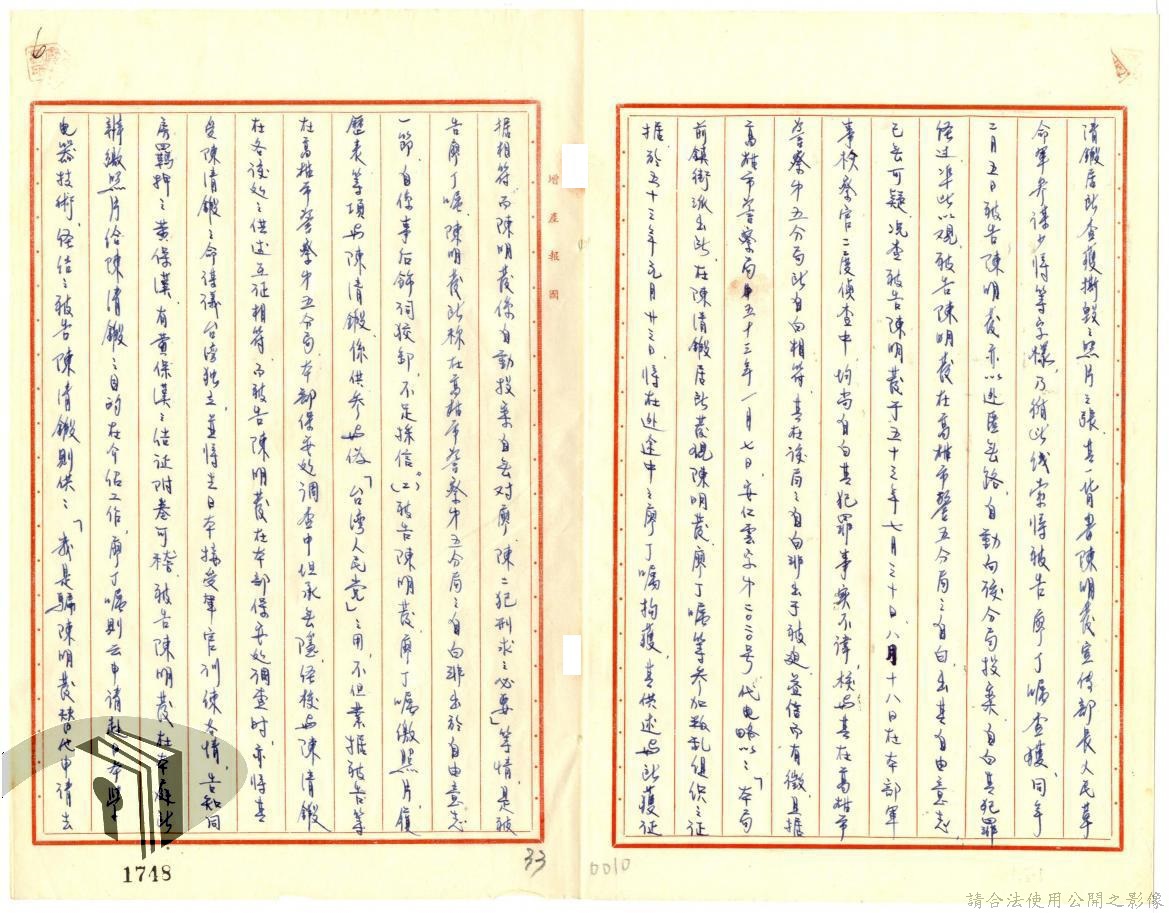 清鍛居所查獲撕毀之照片之張其一背書陳明發宣傳部長人民革
命軍參謀少將等字樣，乃循此线索將被告廖丁嘱查獲，同年
二月五日被告陳明發亦以逃匿無路，自動向該分局投案，自白其犯罪
經过，準此以观，被告陳明發在高雄市警五分局之自白，出其自由意志，
已無可疑，况查被告陳明發于五十三年七月三十日、八月十八日在本部軍
事檢察官二度偵查中，均尚自白其犯罪事实不諱，核與其在高雄市
警察第五分局所自白相符，其在該局之自白非出于被迫益信而有徵，且据
高雄市警察局五十三年一月七日，安仁雲字第二〇二〇号代电略以：「本局
前鎮街派出所，在陳清鍛居所發現陳明發廖丁嘱等参加叛乱組织之证
据，於五十三年元月卅三日，將在逃途中之廖丁嘱拘獲，其供述與所獲证
据相符，而陳明發係自動投案，自無对廖、陳二犯刑求之必要」等情，是被
告廖丁嘱、陳明發所称在高雄市警察第五分局之自白非出於自由意志
一節，自係事后飾词狡卸，不足採信。(2)被告陳明發、廖丁嘱缴照片，履
歷表等項與陳清鍛，係供参與偽「台湾人民党」之用，不但業据被告等
在高雄市警察第五分局，本部保安处調查中坦承無隱，经核與陳清鍛
在各该处之供述互证相符，而被告陳明發在本部保安处調查时，亦將其
受陳清鍛之命謀議台湾独立，並將赴日本接受軍官訓練各情，告知同
房羁押之黄保漢，有黄保漢之结证附卷可稽，被告陳明發在本庭所
辩缴照片给陳清鍛之目的在介紹工作，廖丁嘱則云申请赴日本學
电器技術，经结之被告陳清鍛則供：「我是騙陳明發替他申请去
增產報國
6
1748
33
0010
請合法使用公開之影像